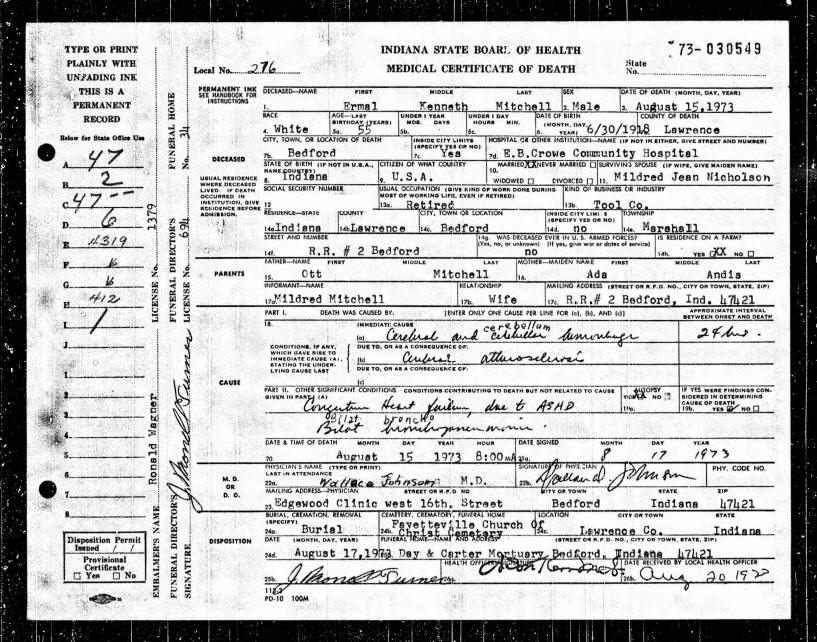 TYPE OR PRINT
PLAINLY WITH
UNFADING INK
THIS IS A
PERMANENT
RECORD
Below for State Office Use
A. 47
B. 2
C. 47
D. 6
E. 4319
F. 6
G. 6
H. 412
I. 1
J.
1.
2.
3.
4.
5.
6.
7.
8.
Disposition Permit
Issued / /
Provisional
Certificate
Yes No
EMBALMER'S NAME Ronald Wagner LICENSE No. 1379
FUNERAL DIRECTOR'S SIGNATURE FUNERAL DIRECTOR'S LICENSE No. 694 FUNERAL HOME No. 34
INDIANA STATE BOARD OF HEALTH
73-030549
Local No. 276 MEDICAL CERTIFICATE OF DEATH State No.
PERMANENT INK
SEE HANDBOOK FOR
INSTRUCTIONS
DECEASED—NAME FIRST MIDDLE LAST SEX DATE OF DEATH (MONTH, DAY, YEAR)
1. Ermal Kenneth Mitchell 2. Male 3. August 15,1973
RACE AGE—LAST BIRTHDAY (YEARS) UNDER 1 YEAR MOS. DAYS UNDER 1 DAY HOURS MIN. DATE OF BIRTH (MONTH, DAY, YEAR) COUNTY OF DEATH
4. White 5a. 55 5b. 5c. 6. 6/30/1918 Lawrence
CITY, TOWN, OR LOCATION OF DEATH INSIDE CITY LIMITS (SPECIFY YES OR NO) HOSPITAL OR OTHER INSTITUTION—NAME (IF NOT IN EITHER, GIVE STREET AND NUMBER)
7b. Bedford 7c. Yes 7d. E.B.Crowe Community Hospital
DECEASED
USUAL RESIDENCE
WHERE DECEASED
LIVED. IF DEATH
OCCURRED IN
INSTITUTION, GIVE
RESIDENCE BEFORE
ADMISSION.
STATE OF BIRTH (IF NOT IN U.S.A., NAME COUNTRY) CITIZEN OF WHAT COUNTRY MARRIED XX NEVER MARRIED SURVIVING SPOUSE (IF WIFE, GIVE MAIDEN NAME)
8. Indiana 9. U.S.A. 10. WIDOWED DIVORCED 11. Mildred Jean Nicholson
SOCIAL SECURITY NUMBER USUAL OCCUPATION (GIVE KIND OF WORK DONE DURING MOST OF WORKING LIFE, EVEN IF RETIRED) KIND OF BUSINESS OR INDUSTRY
12 13a. Retired 13b. Tool Co.
RESIDENCE—STATE COUNTY CITY, TOWN OR LOCATION INSIDE CITY LIMITS (SPECIFY YES OR NO) TOWNSHIP
14a. Indiana 14b. Lawrence 14c. Bedford 14d. no 14e. Marshall
STREET AND NUMBER 14g. WAS DECEASED EVER IN U.S. ARMED FORCES? (Yes, no, or unknown) (If yes, give war or dates of service) IS RESIDENCE ON A FARM?
14f. R.R. # 2 Bedford no 14h. YES XX NO
PARENTS
FATHER—NAME FIRST MIDDLE LAST MOTHER—MAIDEN NAME FIRST MIDDLE LAST
15. Ott Mitchell 16. Ada Andis
INFORMANT—NAME RELATIONSHIP MAILING ADDRESS (STREET OR R.F.D. NO., CITY OR TOWN, STATE, ZIP)
17a. Mildred Mitchell 17b. Wife 17c. R.R.# 2 Bedford, Ind. 47421
PART I. DEATH WAS CAUSED BY: [ENTER ONLY ONE CAUSE PER LINE FOR (a), (b), AND (c)] APPROXIMATE INTERVAL BETWEEN ONSET AND DEATH
18. IMMEDIATE CAUSE
cerebellum
(a) Cerebral and cerebellar hemorrhage 24 hrs.
CONDITIONS, IF ANY,
WHICH GAVE RISE TO
IMMEDIATE CAUSE (A),
STATING THE UNDER-
LYING CAUSE LAST
DUE TO, OR AS A CONSEQUENCE OF:
(b) Cerebral atherosclerosis
DUE TO, OR AS A CONSEQUENCE OF:
(c)
CAUSE
PART II. OTHER SIGNIFICANT CONDITIONS CONTRIBUTING TO DEATH BUT NOT RELATED TO CAUSE GIVEN IN PART I (A) AUTOPSY YES NO IF YES WERE FINDINGS CONSIDERED IN DETERMINING CAUSE OF DEATH
19a. 19b. YES NO
Congestive Heart failure, due to ASHD
Bilat. broncho
Bilat bronchopneumonia
DATE & TIME OF DEATH MONTH DAY YEAR HOUR DATE SIGNED MONTH DAY YEAR
20. August 15 1973 8:00 M 21a. 8 17 1973
M. D.
OR
D. O.
PHYSICIAN'S NAME (TYPE OR PRINT) LAST IN ATTENDANCE SIGNATURE OF PHYSICIAN PHY. CODE NO.
22a. Wallace Johnson M.D. 22b. Wallace Johnson
MAILING ADDRESS—PHYSICIAN STREET OR R.F.D. NO CITY OR TOWN STATE ZIP
23. Edgewood Clinic west 16th. Street Bedford Indiana 47421
DISPOSITION
BURIAL, CREMATION, REMOVAL (SPECIFY) CEMETERY, CREMATORY, FUNERAL HOME LOCATION CITY OR TOWN STATE
24a. Burial 24b. Fayetteville Church Of Christ Cemetery 24c. Lawrence Co. Indiana
DATE (MONTH, DAY, YEAR) FUNERAL HOME—NAME AND ADDRESS (STREET OR R.F.D. NO., CITY OR TOWN, STATE, ZIP)
24d. August 17,1973 Day & Carter Mortuary Bedford, Indiana 47421
HEALTH OFFICER SIGNATURE DATE RECEIVED BY LOCAL HEALTH OFFICER
25b. 26b. Aug 20 1973
PD-10 100M